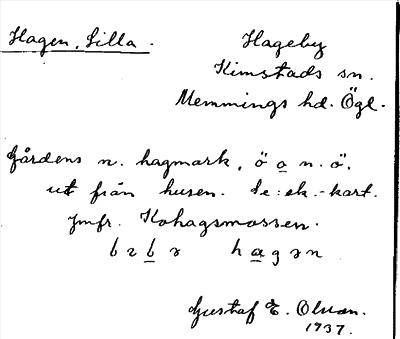 Hagen, Lilla.
Hageby
Kimstads sn.
Memmings hd. Ögl.
Gårdens n. hagmark, ö o n. ö.
ut från husen. Se: ek.-kart.
Jmfr. Kohagsmossen.
hagɘn
Gustaf E. Olsson.
1937.